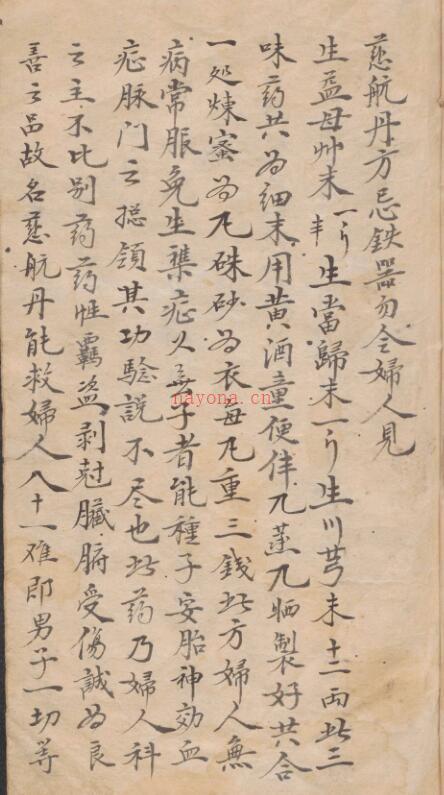 慈航丹方忌鉄噐勿令婦人見
生益母艸末一斤半生當歸末一斤生川芎末十二両此三
味药共为细末用黄酒童便伴九蒸九晒製好共合
一処煉蜜为丸硃砂为衣每丸重三錢此方婦人無
病常服免生襍症久無子者能種子安胎神効血
症脉门之揔領其功驗説不尽也此药乃婦人科
之主不比别药药性霸盗剥尅臟腑受傷誠为良
善之品故名慈航丹能救婦人八十一难即男子一切等
nayona.cn